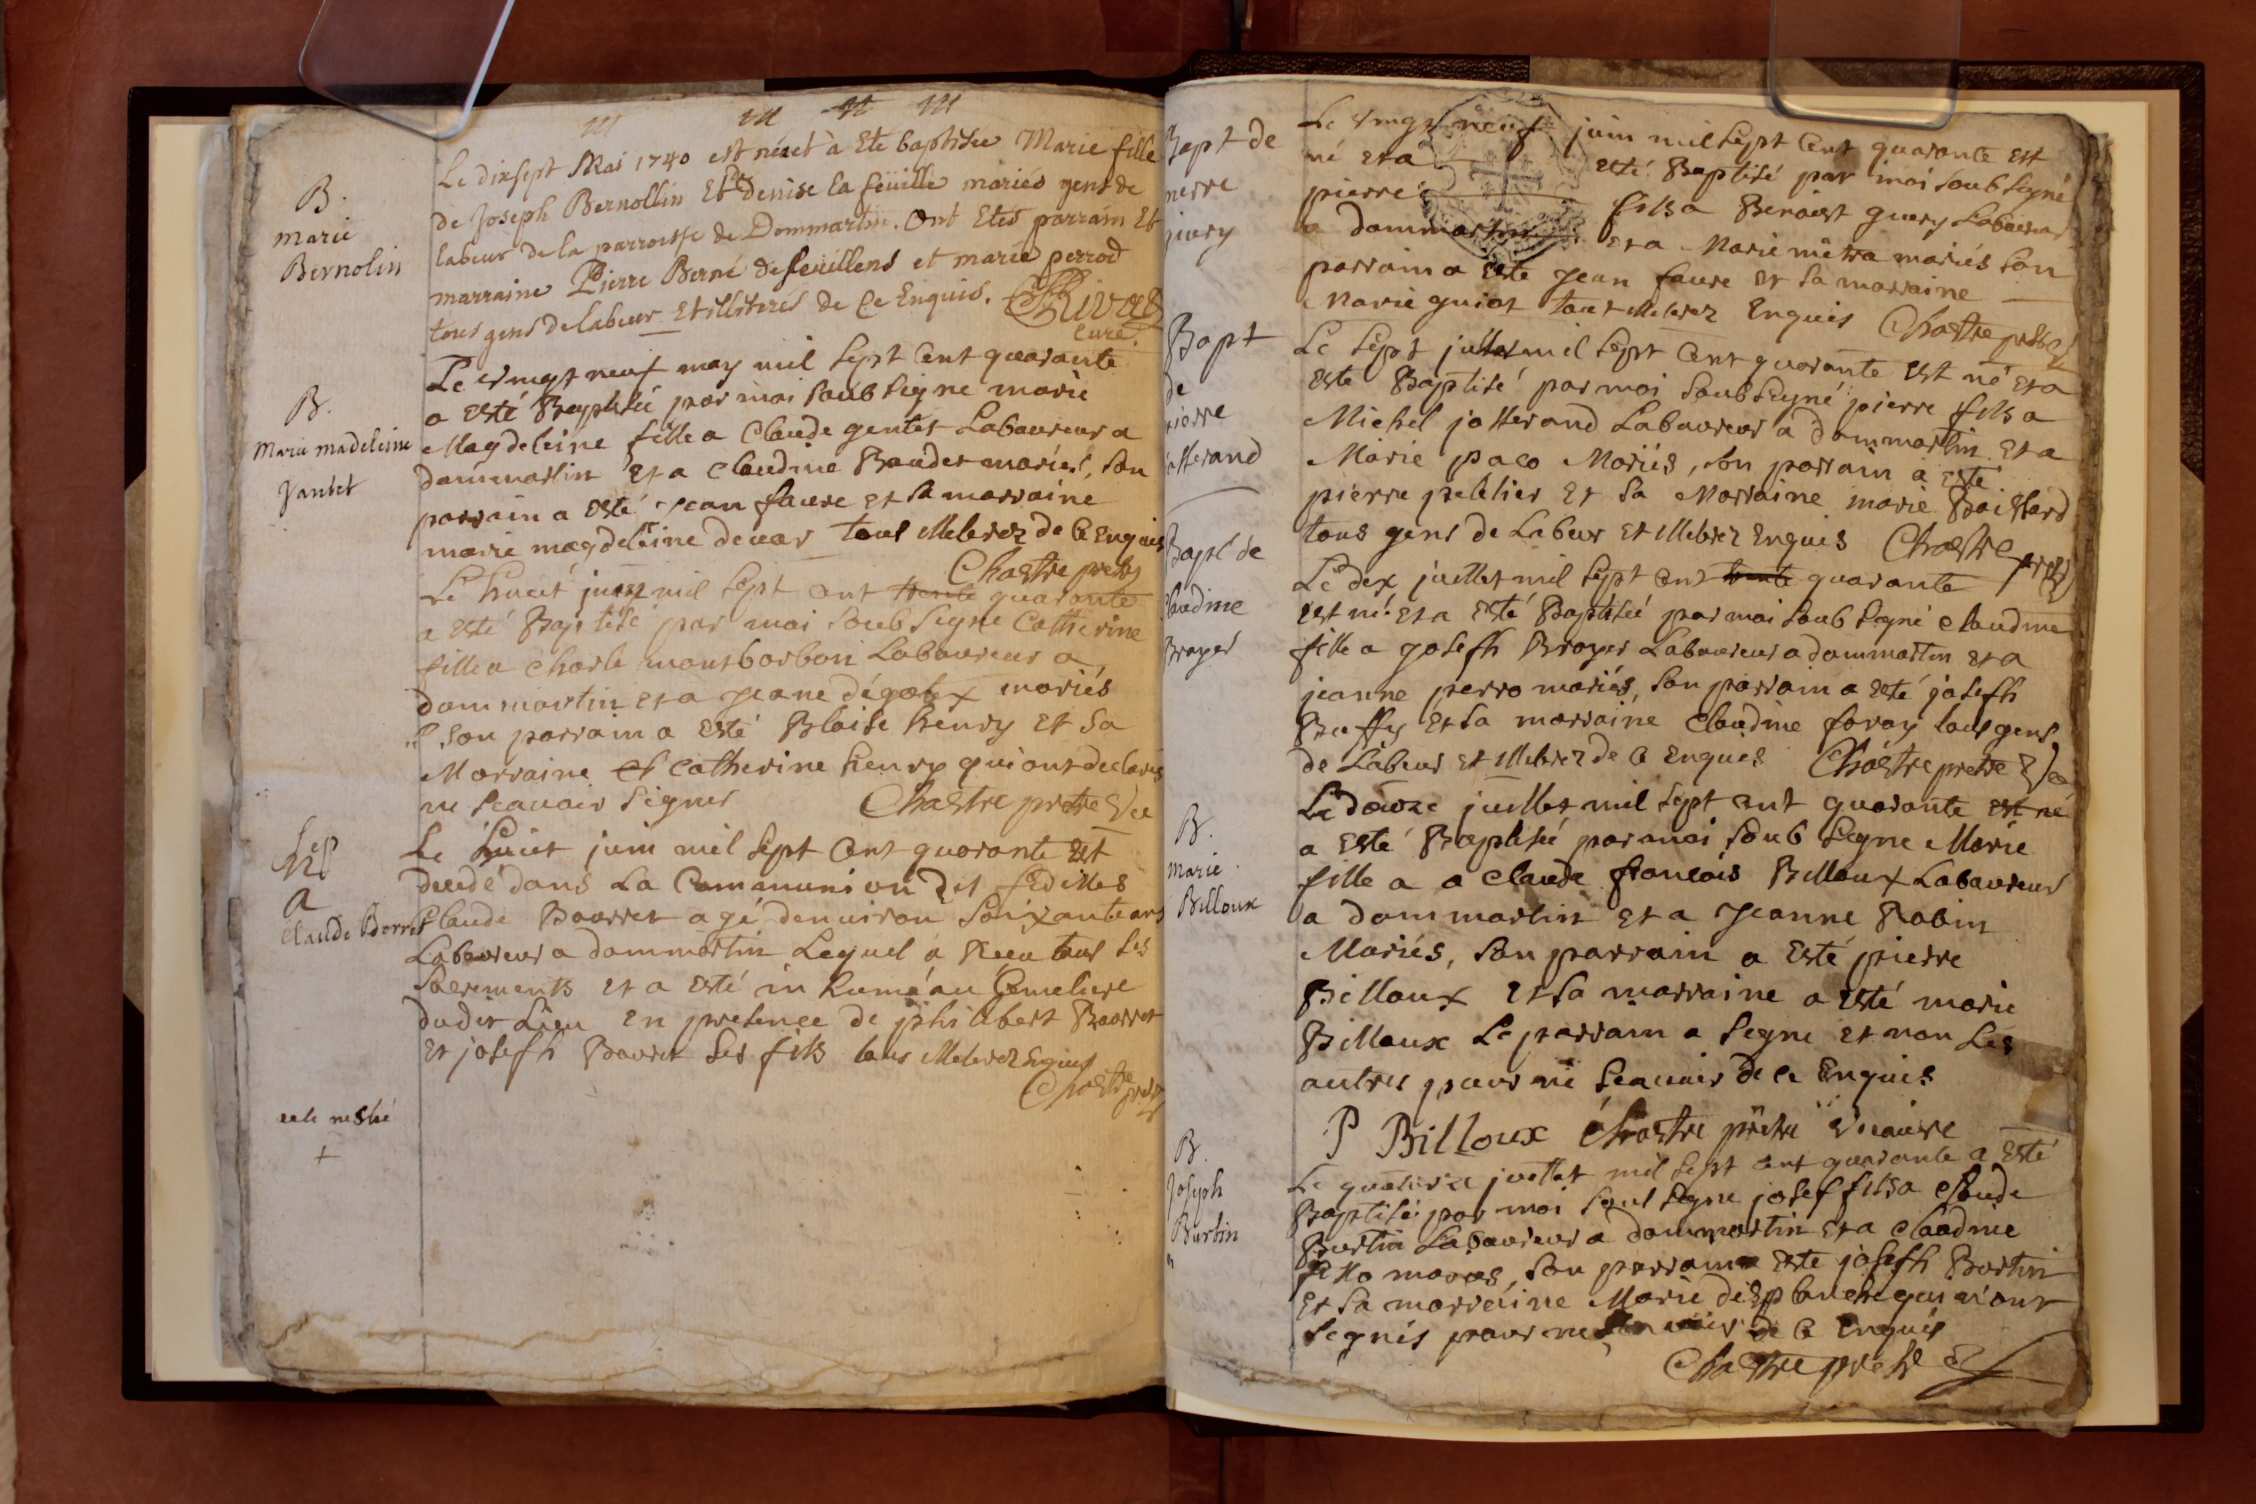 B.
Marie
Bernolin
Le dixsept Mai 1740 est néeet à Ete baptisée Marie fille
de Joseph Bernollin Et Denise la feüille mariés gens de
labeur de la parroisse de Dommartin. Ont Etes parrain Et
marraine Pierre Berné de feüillens et marie perrod
tous gens de labeur Et illiterés de Ce Enquis.
Curé.
B.
Marie madeleine
Le vingt neuf may mil sept cent quarante
a esté Baptisée par moi soub signe marie
Magdeleine fille a Claude gentet Laboureur a
dommartin et a claudine Baudet mariés, son
parrain a esté jean faure et sa marraine
marie magdeleine devar tous illeterez de ce enquis
Chastre pretre
Le huict juin mil sept cent trente quarante
a esté Baptisé par moi soub signe Catherine
fille a Charle montborbon Laboureur a
dommartin et a jeane dégolex mariés
son parrain a esté Blaise henry et sa
Marraine et Catherine henry qui ont declarés
ne scavoir signer Chastre pretre
Sep
a
Claude Borret
Le huict juin mil sept cent quarante est
decedé dans La Communion
Claude Bourret agé denviron soixante ans
Laboureur a dommartin Lequel a Receu tous les
sacrements et a esté in humé au Cemetiere
dudit Lieu en presence de philibert Bourret
et joseph Bourret ses fils tous illeterez Enquis
Chastre pretre
+
Bapt de
pierre
guery
Le vingt neuf juin mil sept cent quarante est
né et a esté Baptisé par moi soub segné
pierre fils a Benoist guery Laboureur
a dommartin et a Marie mêtra mariés son
parrain a este jean faure et sa marraine
Marie guiot tous illeterez Enquis Chastre pretre
Bapt
de
pierre
jotterand
Le sept juillet mil sept cent quarante est né et a
esté Baptisé par moi soub segné pierre fils a
Michel jotterand Laboureur a dommartin et a
Marie paco Mariés, son parrain a esté
pierre peletier et sa Marraine marie Baillard
tous gens de Labeur et illeterez Enquis Chastre pretre
Bapt de
claudine
Broyer
Le dix juillet mil sept cent trente quarante
est né et a esté Baptisée par moi soub segné claudine
fille a joseph Broyer Laboureur a dommartin et a
jeanne perro mariés, son parrain a esté joseph
Buffy et sa marraine claudine foray tous gens
de Labeur et illeterez de ce enques Chastre pretre
B.
Marie
Billoux
Le douze juillet mil sept cent quarante est né
a esté Baptisée par moi soub segne Marie
fille a a claude francois Billoux Laboureur
a dommartin et a jeanne Robin
Mariés, son parrain a esté pierre
Billoux et sa marraine a esté marie
Billoux Le parrain a segne et non Les
autres pour ne scavoir de ce Enquis
P Billoux Chastre prêtre vicaire
B.
Joseph
Burtin
Le quatorze juillet mil sept cent quarante a esté
Baptisé par moi soul segne josef fils a claude
Burtin Laboureur a dommartin et a claudine
mariés, son parrain a este joseph Burtin
et sa marraine Marie desplanche qui n'ont
segnés pour ne scavoir de ce Enquis
Chastre pretre